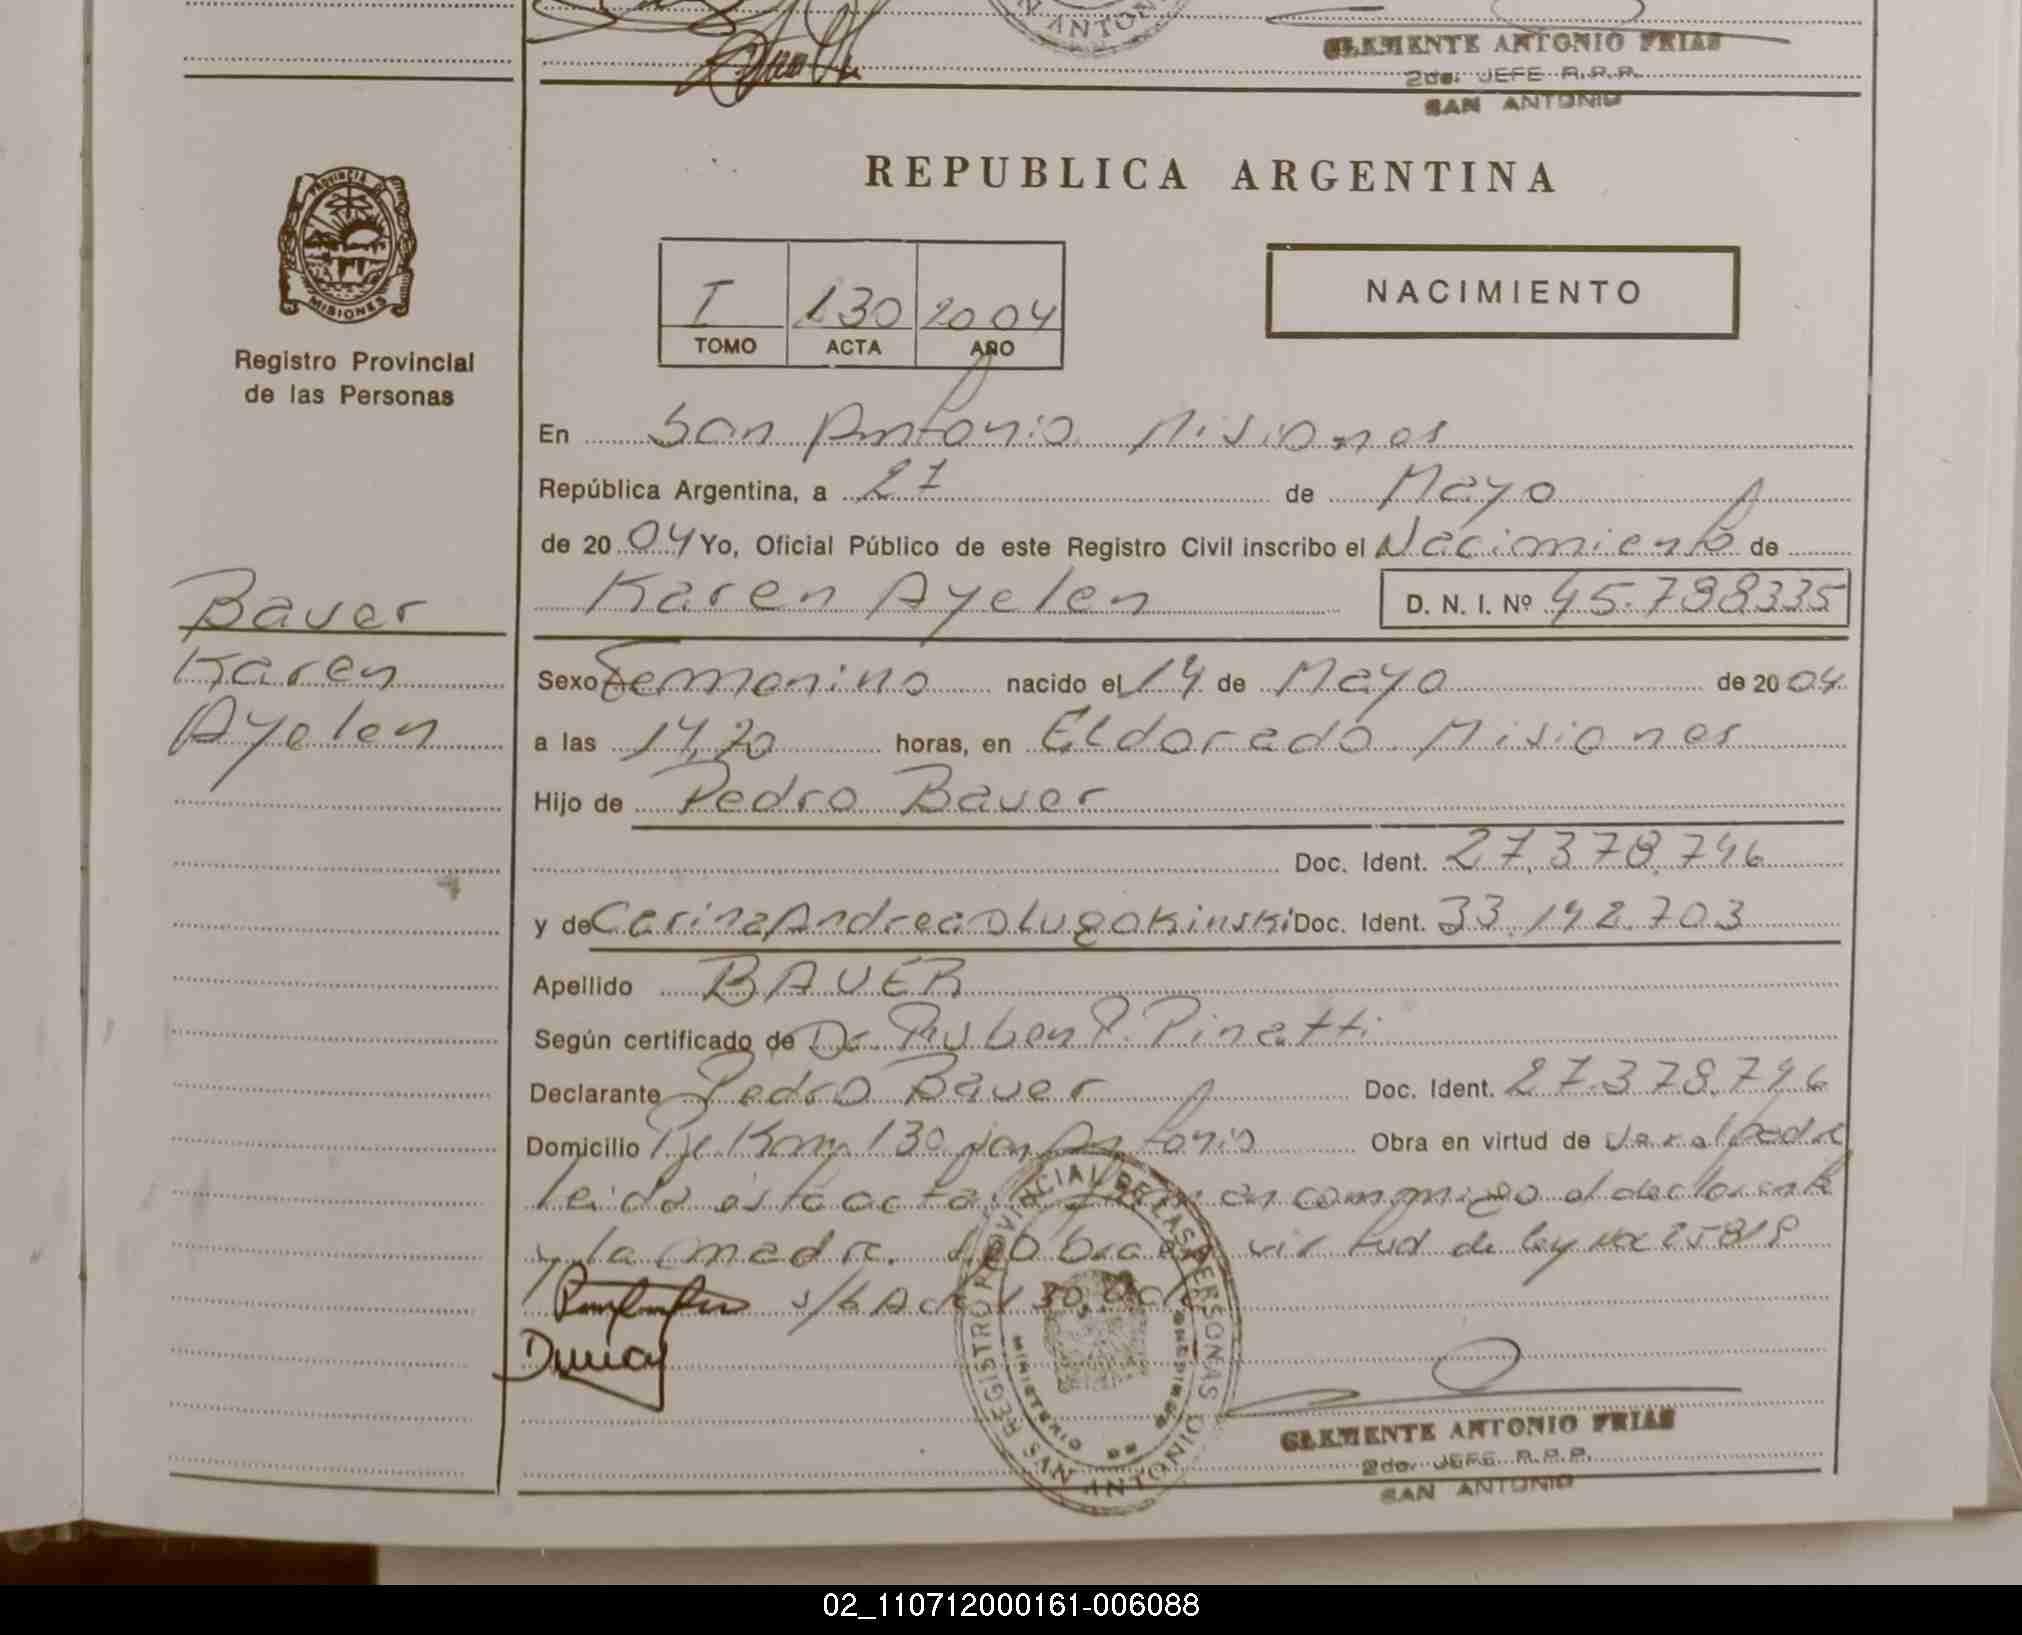 R ANTONI
CLEMENTE ANTONIO FRIAS
2do. JEFE R.P.P.
SAN ANTONIO
PROVINCIA DE
MISIONES
Registro Provincial
de las Personas
REPUBLICA ARGENTINA
I 130 2004
TOMO ACTA AÑO
NACIMIENTO
En San Antonio Misiones
República Argentina, a 27 de Mayo
de 20 04 Yo, Oficial Público de este Registro Civil inscribo el Nacimiento de
Karen Ayelen D. N. I. Nº 45.798335
Bauer
Karen
Ayelen
Sexo Femenino nacido el 14 de Mayo de 20 04
a las 14,20 horas, en Eldorado Misiones
Hijo de Pedro Bauer
Doc. Ident. 27.378.746
y de Carina Andrea Dlugokinski Doc. Ident. 33.142.703
Apellido BAUER
Según certificado de Dr. Ruben P. Pinatti
Declarante Pedro Bauer Doc. Ident. 27.378.746
Domicilio Pje Km 130 San Antonio Obra en virtud de ser el padre
leida esta acta firman conmigo el declarante
y la madre. Obra en virtud de ley 25818
s/b Acta 130
REGISTRO PROVINCIAL DE LAS PERSONAS
SAN ANTONIO
MINISTERIO DE GOBIERNO
CLEMENTE ANTONIO FRIAS
2do. JEFE R.P.P.
SAN ANTONIO
02_110712000161-006088